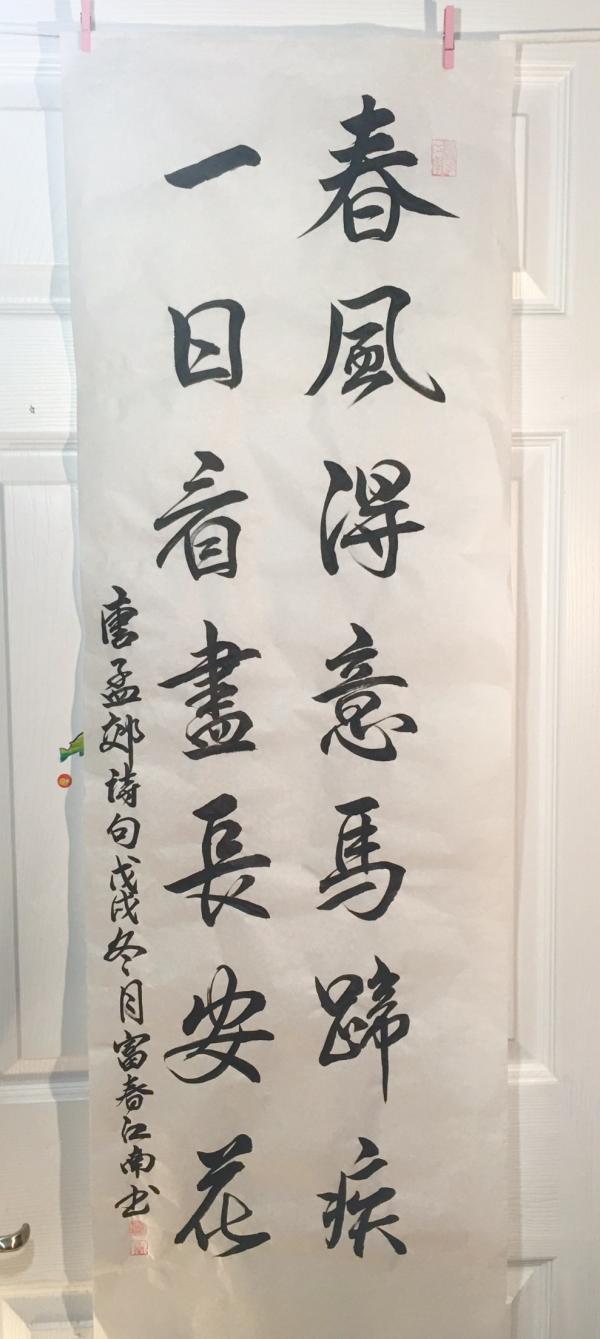 春風得意馬蹄疾
一日看盡長安花
唐孟郊詩句戊戌冬月富春江南书